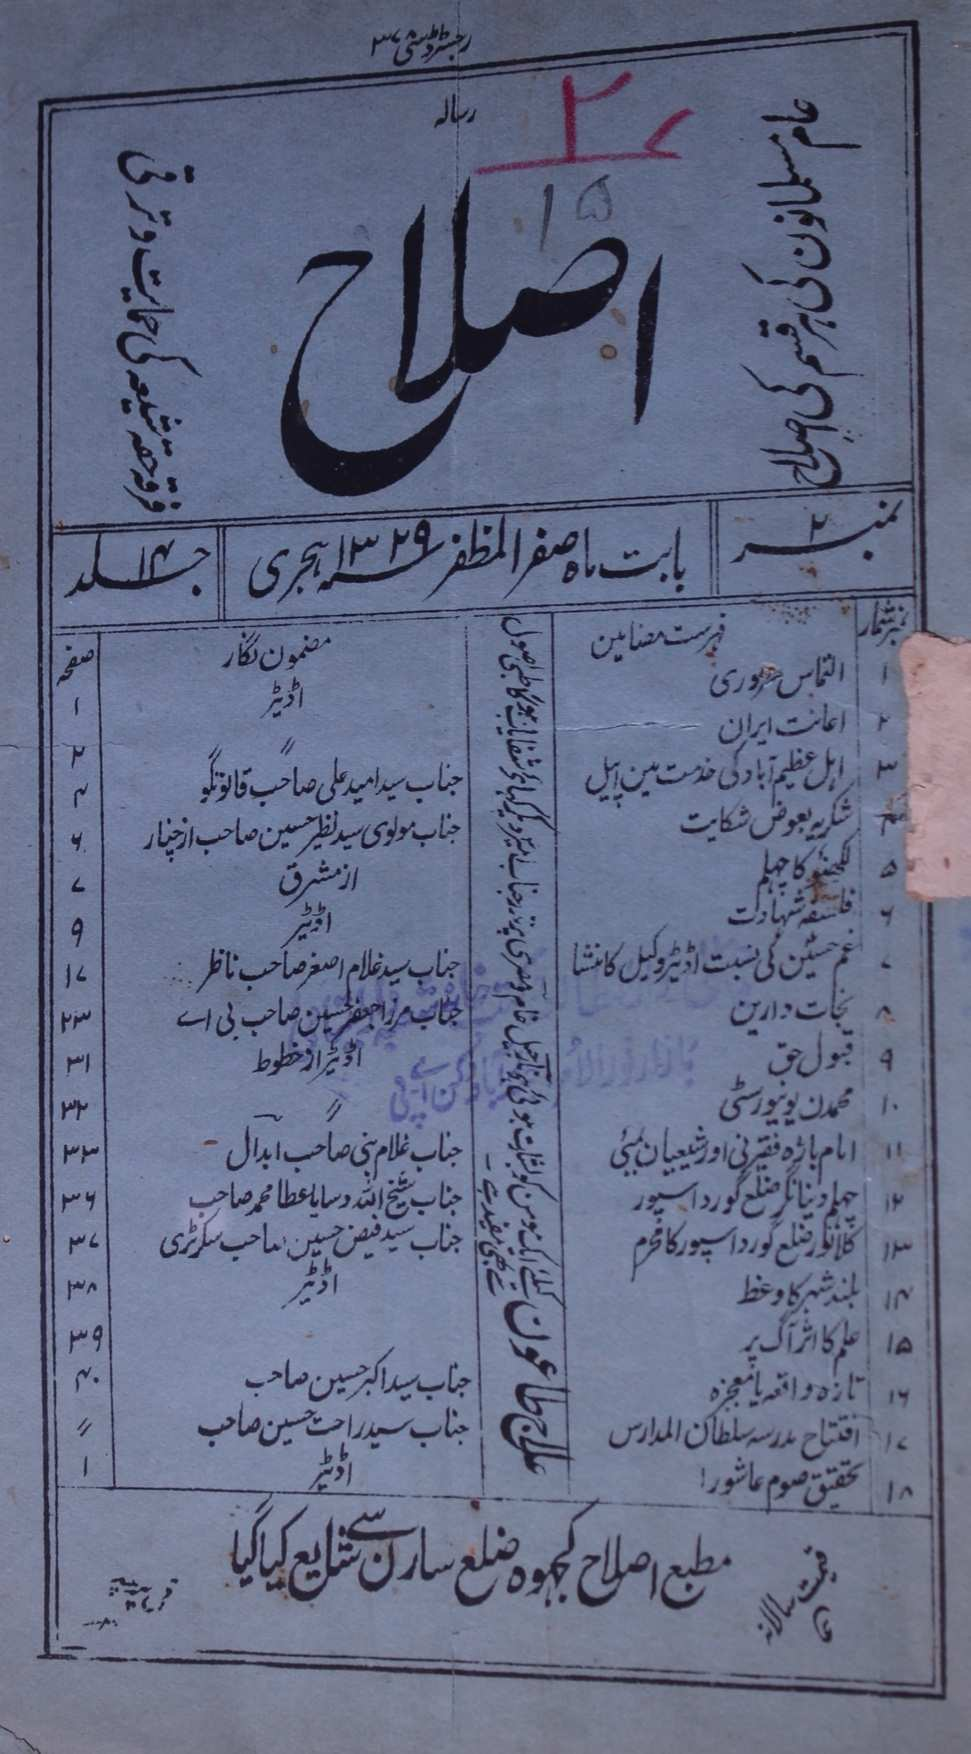 رجسٹرڈ
رسالہ
۲۷
۱۵
اصلاح
عام مسلمانون کی ہر قسم کی اصلاح
فرقہ حقہ شیعہ کی حمایت و ترقی
نمبر ۲
بابت ماہ صفر المظفر سنہ ۱۳۲۹ ہجری
جلد ۱۴
نمبر شمار فہرست مضامین مضمون نگار صفحہ
۱ التماس ضروری اڈیٹر ۱
۲ اعانت ایران ״ ۲
۳ اہل عظیم آباد کی خدمت مین اپیل جناب سید امید علی صاحب قانونگو ۴
۴ شکریہ بعوض شکایت جناب مولوی سید نظیر حسین صاحب از چنار ۶
۵ لکھنؤ کا چہلم از مشرق ۷
۶ فلسفہ شہادت اڈیٹر ۹
۷ غم حسین کی نسبت اڈیٹر وکیل کا منشا جناب سید غلام اصغر صاحب ناظر ۱۷
۸ نجات دارین جناب مرزا جعفر حسین صاحب بی اے ۲۳
۹ قبول حق اڈیٹر از خطوط ۳۱
۱۰ محمدن یونیورسٹی ״ ۳۲
۱۱ امام باڑہ فقیرنی اور شیعیان بمبئی جناب غلام نبی صاحب ابدال ۳۳
۱۲ چہلم دینانگر ضلع گورداسپور جناب شیخ اللہ وسایا عطا محمد صاحب ۳۶
۱۳ کلانور ضلع گورداسپور کا محرم جناب سید فیض حسین صاحب سکرٹری ۳۷
۱۴ بلند شہر کا وعظ اڈیٹر ۳۸
۱۵ علم کا اثر آگ پر ۳۹
۱۶ تازہ واقعہ یا معجزہ جناب سید اکبر حسین صاحب ۴۰
۱۷ افتتاح مدرسہ سلطان المدارس جناب سید راحت حسین صاحب ״
۱۸ تحقیق صوم عاشورا اڈیٹر ۱
علاج طاعون کیلئے
مطبع اصلاح کھجوہ ضلع سارن سے شایع کیا گیا
قیمت سالانہ